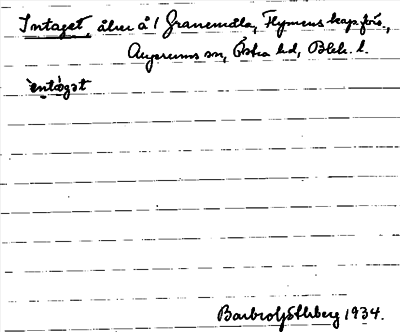 Intaget, åker å 1 Granemåla, Flymens kap.förs.,
Augerums sn, Östra hd, Blek. l.
Barbro Göthberg 1934.